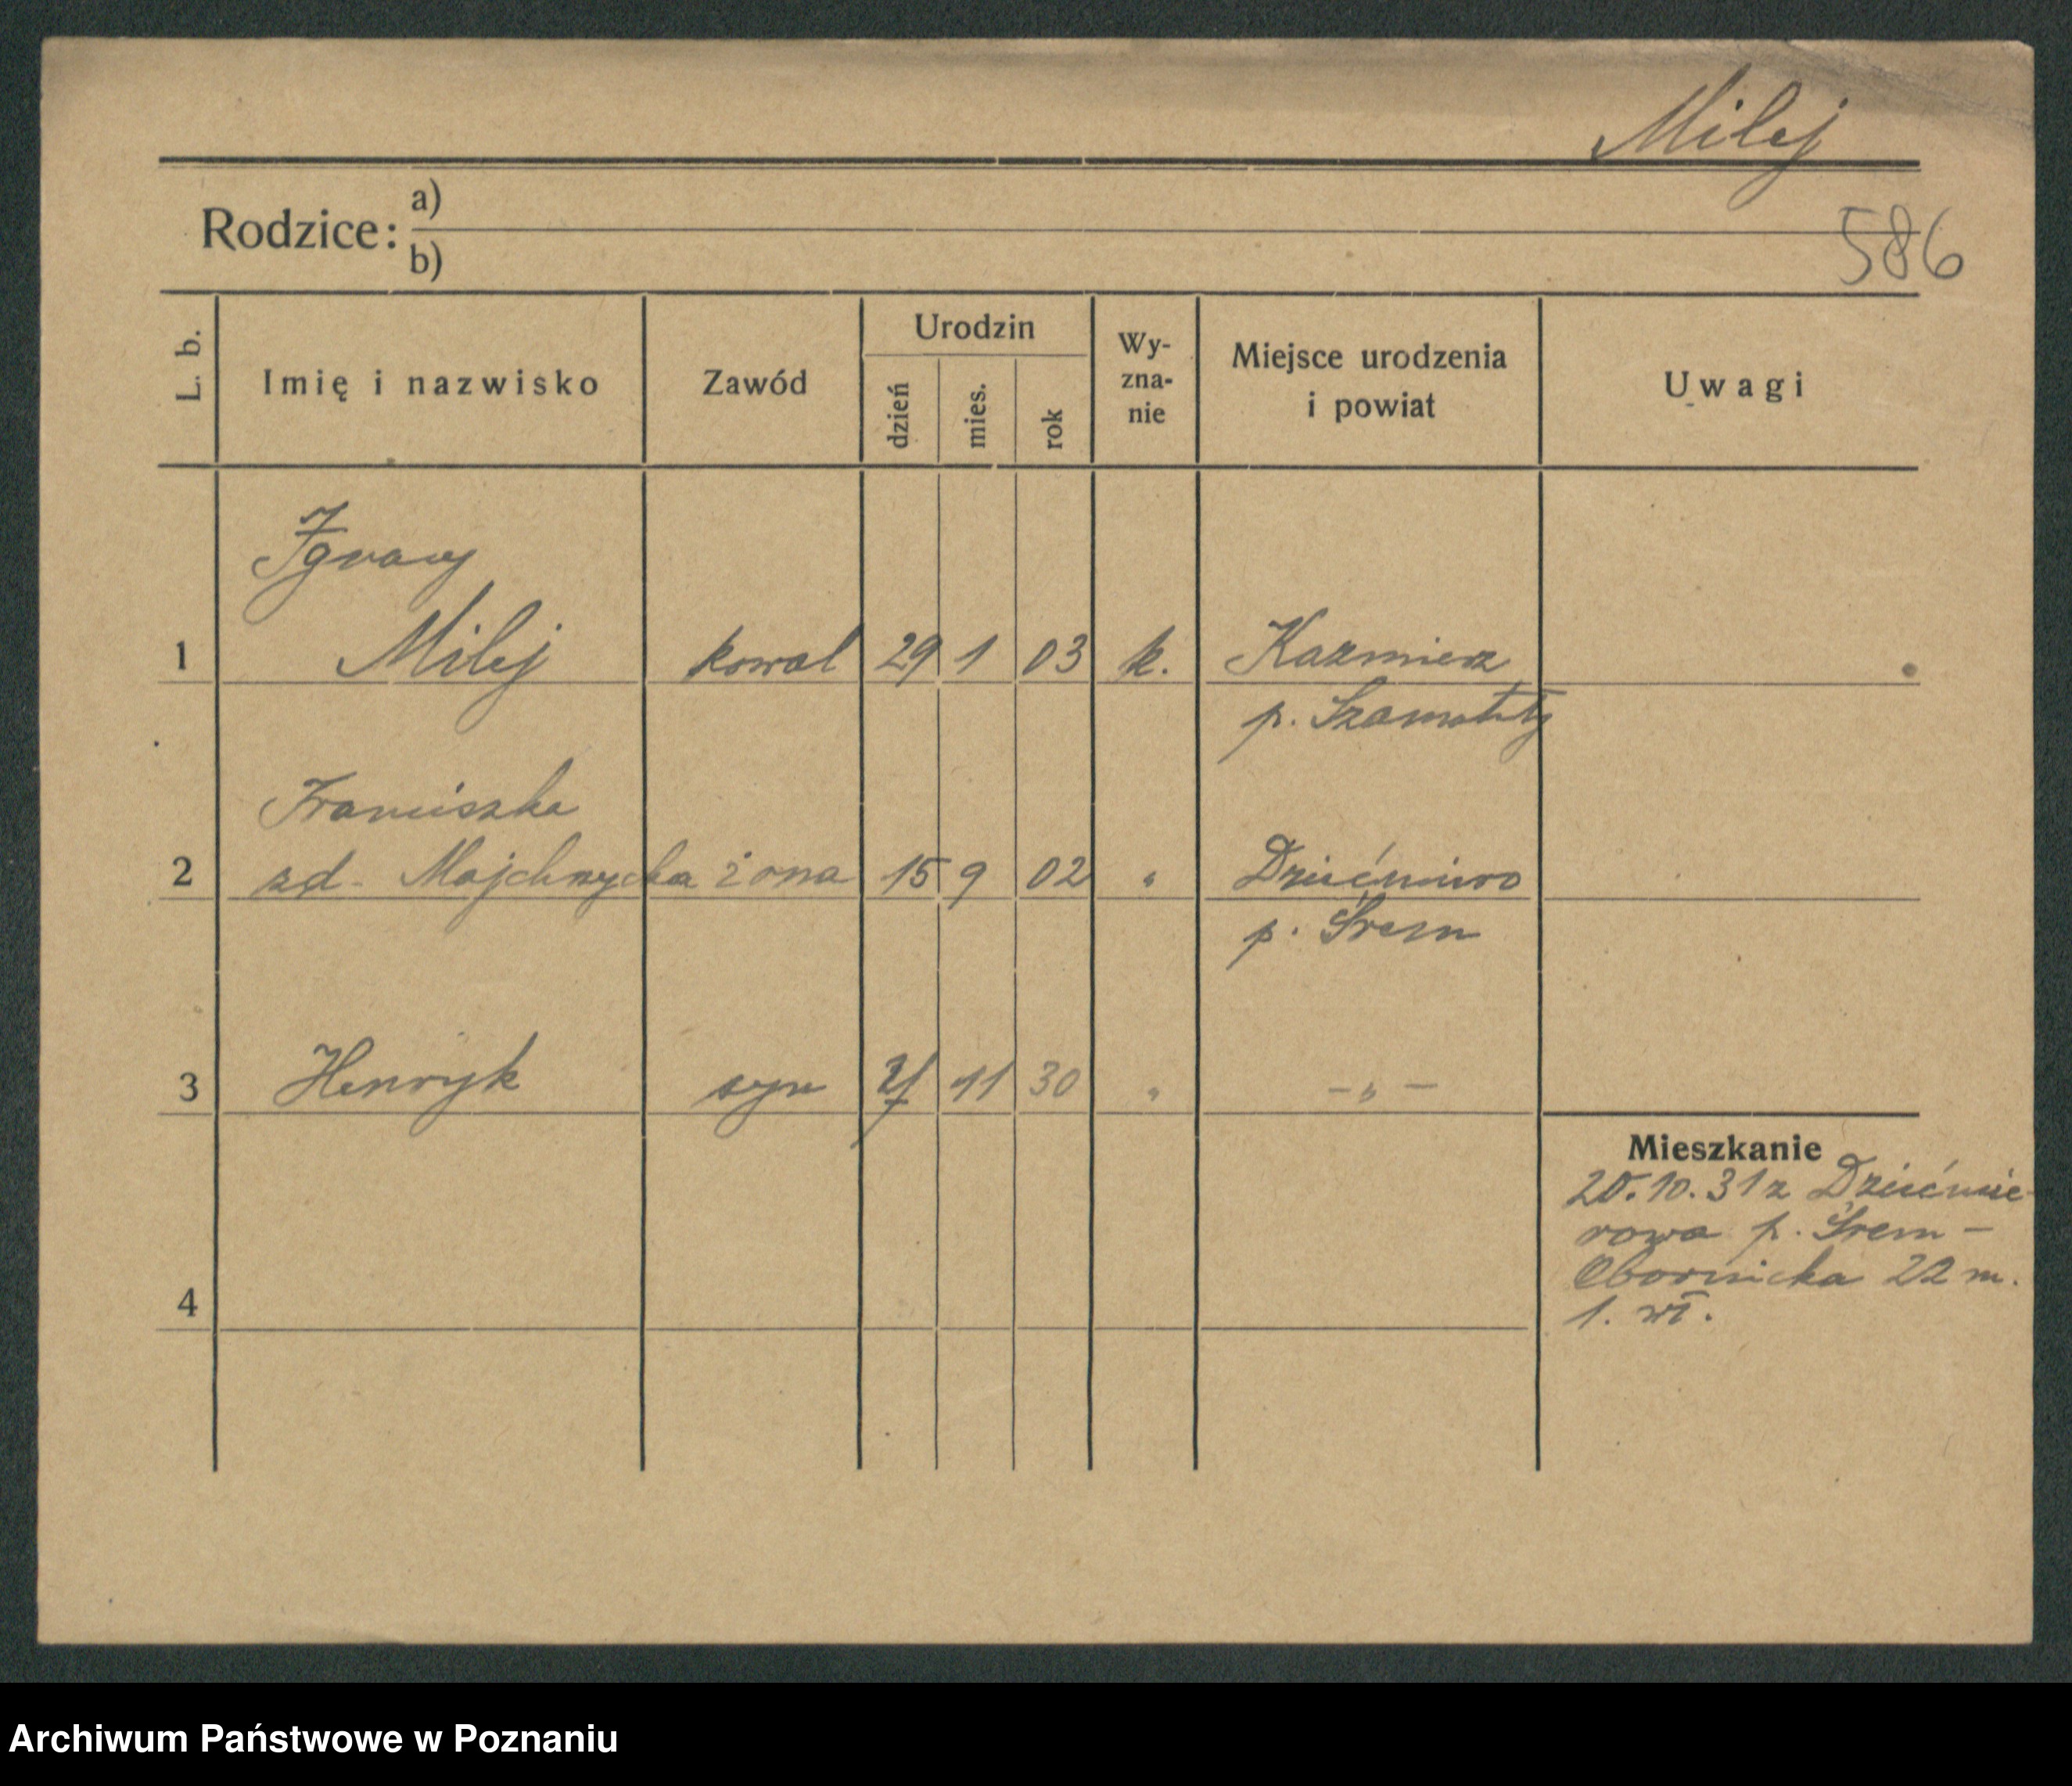 Milej
586
Rodzice: a)
b)
L. b. Imię i nazwisko Zawód Urodzin dzień mies. rok Wy-zna-nie Miejsce urodzenia i powiat Uwagi
Ignacy
1 Milej kowal 29 1 03 k. Kazmierz
p. Szamotuły
Franciszka
2 zd. Majchrzycka żona 15 9 02 " Dziećmiro
p. Śrem
3 Henryk syn 11 30 " - " -
Mieszkanie
20.10.31 z Dziećmie-
rowa p. Śrem -
Obornicka 22 m.
1. wł.
4
Archiwum Państwowe w Poznaniu